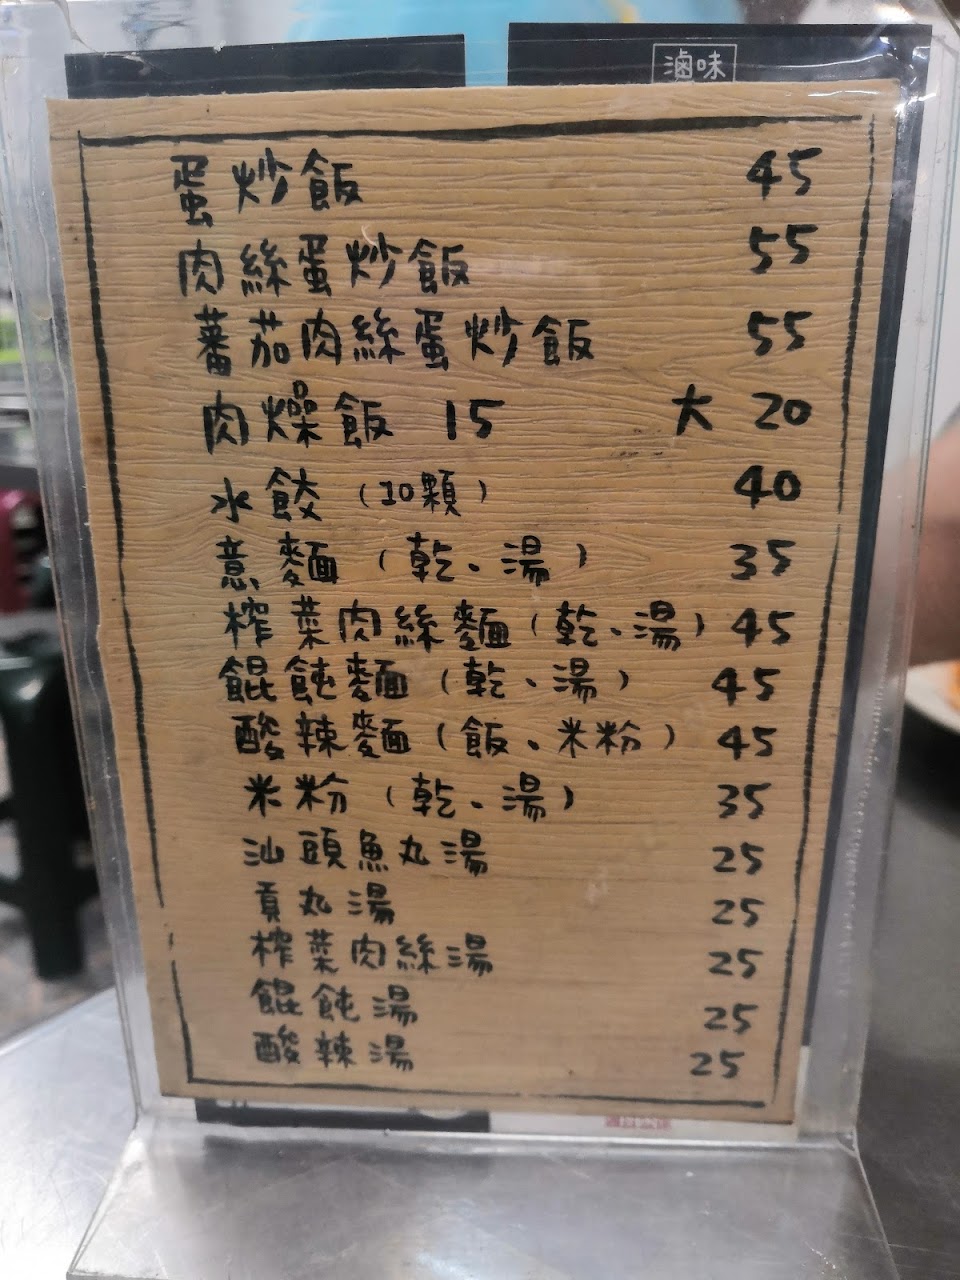 滷味
蛋炒飯 45
肉絲蛋炒飯 55
蕃茄肉絲蛋炒飯 55
肉燥飯 15 大 20
水餃（10顆） 40
意麵（乾、湯） 35
榨菜肉絲麵（乾、湯） 45
餛飩麵（乾、湯） 45
酸辣麵（飯、米粉） 45
米粉（乾、湯） 35
汕頭魚丸湯 25
貢丸湯 25
榨菜肉絲湯 25
餛飩湯 25
酸辣湯 25